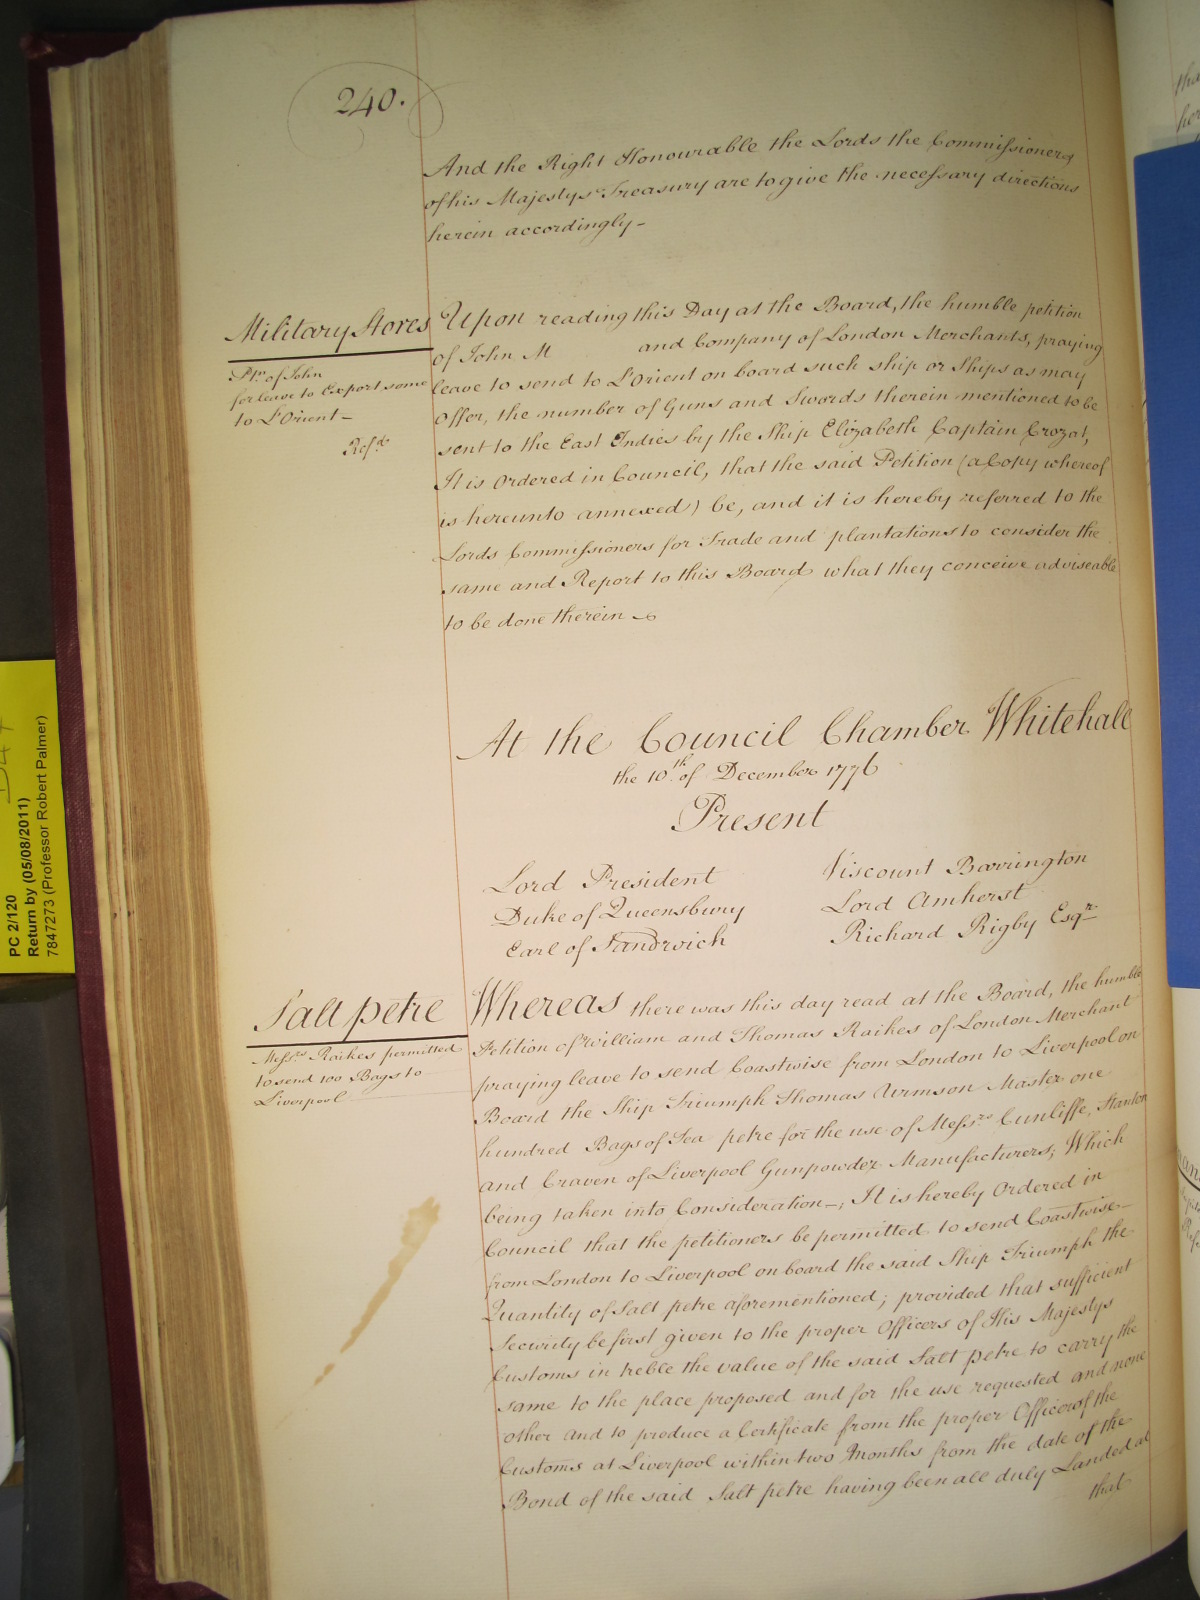 240.
And the Right Honourable the Lords the Commissioners
of his Majestys Treasury are to give the necessary directions
herein accordingly -
Military Stores
Ptn. of John
for leave to Export some
to L'Orient -
Refd.
Upon reading this Day at the Board, the humble petition
of John M and Company of London Merchants, praying
leave to send to L'Orient on board such ship or Ships as may
offer, the number of Guns and Swords therein mentioned to be
sent to the East Indies by the Ship Elizabeth Captain Crozat,
It is Ordered in Council, that the said Petition (a Copy whereof
is hereunto annexed) be, and it is hereby referred to the
Lords Commissioners for Trade and plantations to consider the
same and Report to this Board what they conceive adviseable
to be done therein
At the Council Chamber Whitehall
the 10th. of December 1776
Present
Lord President
Duke of Queensbury
Earl of Sandwich
Viscount Barrington
Lord Amherst
Richard Rigby Esqr.
Salt petre
Messrs. Raikes permitted
to send 100 Bags to
Liverpool
Whereas there was this day read at the Board, the humble
Petition of William and Thomas Raikes of London Merchant
praying leave to send Coastwise from London to Liverpool on
Board the Ship Triumph Thomas Urmson Master one
hundred Bags of Sea petre for the use of Messrs. Cunliffe, Stanton
and Craven of Liverpool Gunpowder Manufacturers; Which
being taken into Consideration -; It is hereby Ordered in
Council that the petitioners be permitted to send Coastwise
from London to Liverpool on board the said Ship Triumph the
Quantity of Salt petre aforementioned; provided that sufficient
Security be first given to the proper Officers of His Majestys
Customs in treble the value of the said Salt petre to carry the
same to the place proposed and for the use requested and none
other and to produce a Certificate from the proper Officer of the
Customs at Liverpool within two Months from the date of the
Bond of the said Salt petre having been all duly Landed at
that
PC 2/120
Return by (05/08/2011)
7847273 (Professor Robert Palmer)